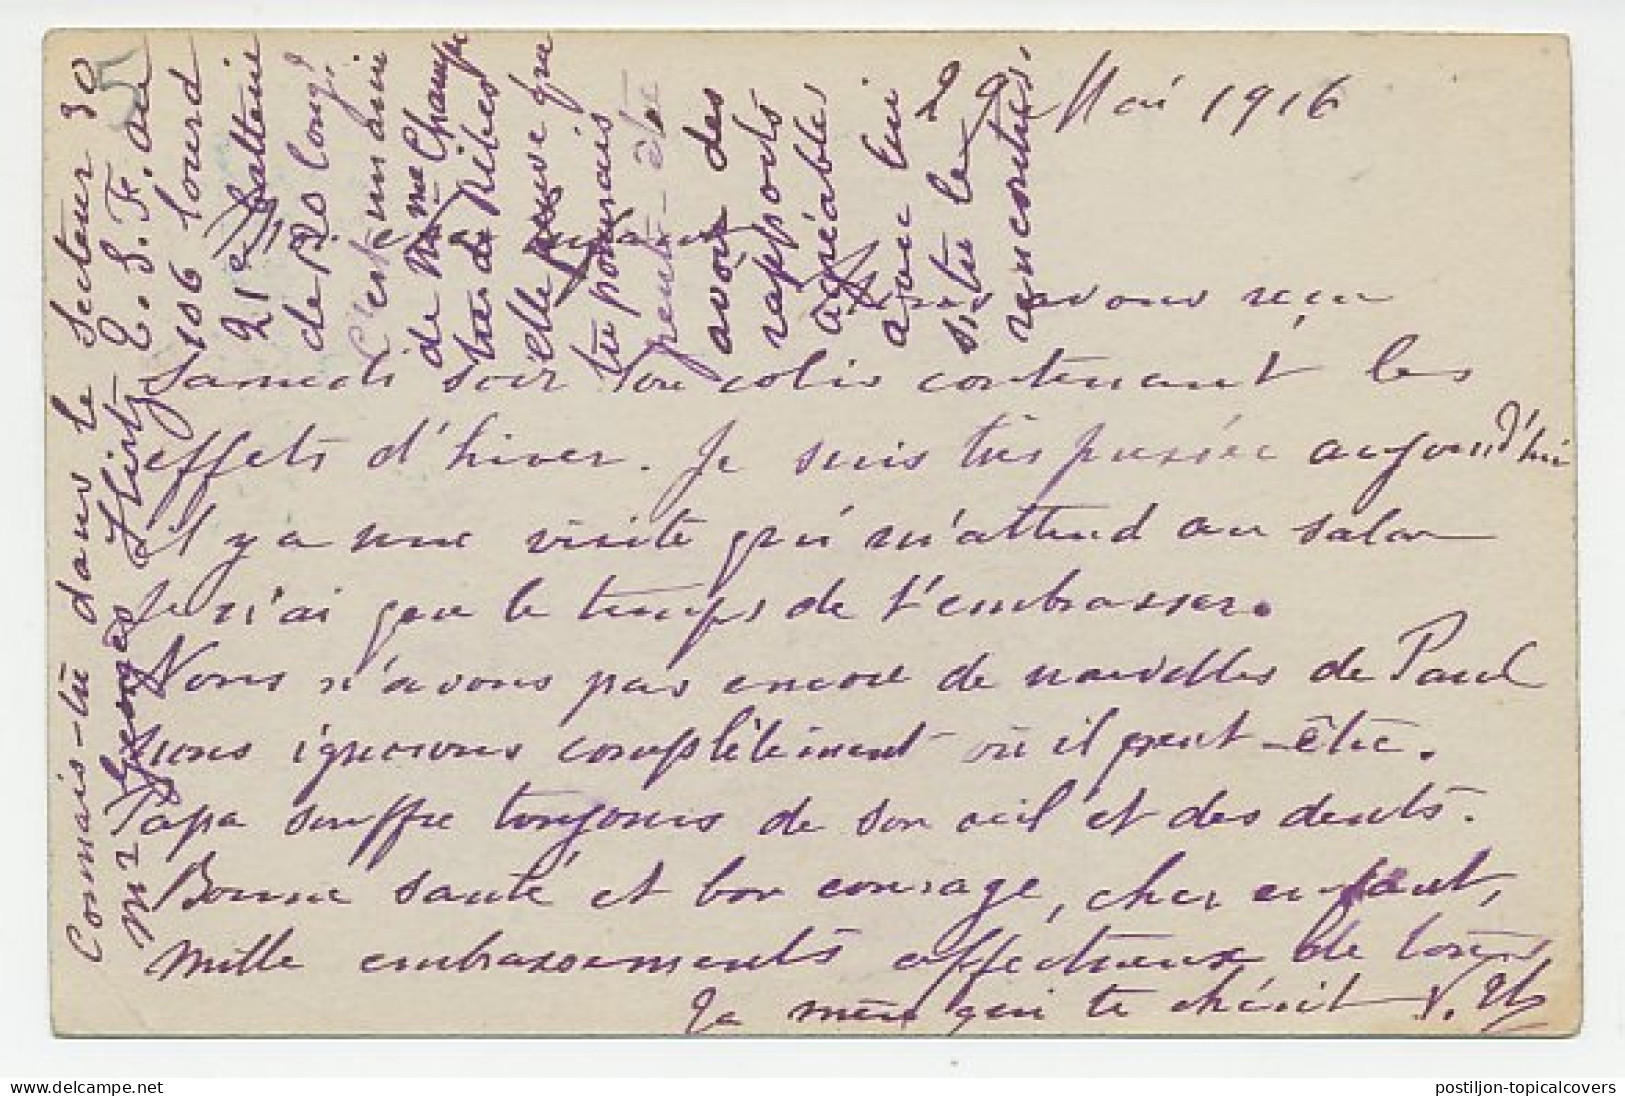 29 Mai 1916
Mon cher enfant
Nous avons reçu
Samedi soir ton colis contenant les
effets d'hiver. Je suis très pressée aujourd'hui
il y a une visite qui m'attend au salon
Je n'ai que le temps de t'embrasser.
Nous n'avons pas encore de nouvelles de Paul
nous ignorons complètement où il peut-être.
Papa souffre toujours de son œil et des dents.
Bonne santé et bon courage, cher enfant,
Mille embrassements affectueux de tous
Ta mère qui te chérit
Connais-tu dans le Secteur 30
Mr Georges
T. S. F. au
106 lourd
21e Batterie
de 120 long?
C'est un ami
de Mme Champe
tre de Ribes
elle pense que
tu pourrais
peut-être
avoir des
rapports
agréables
avec lui
si tu le
rencontres.
postiljon-topicalcovers
https://www.delcampe.net